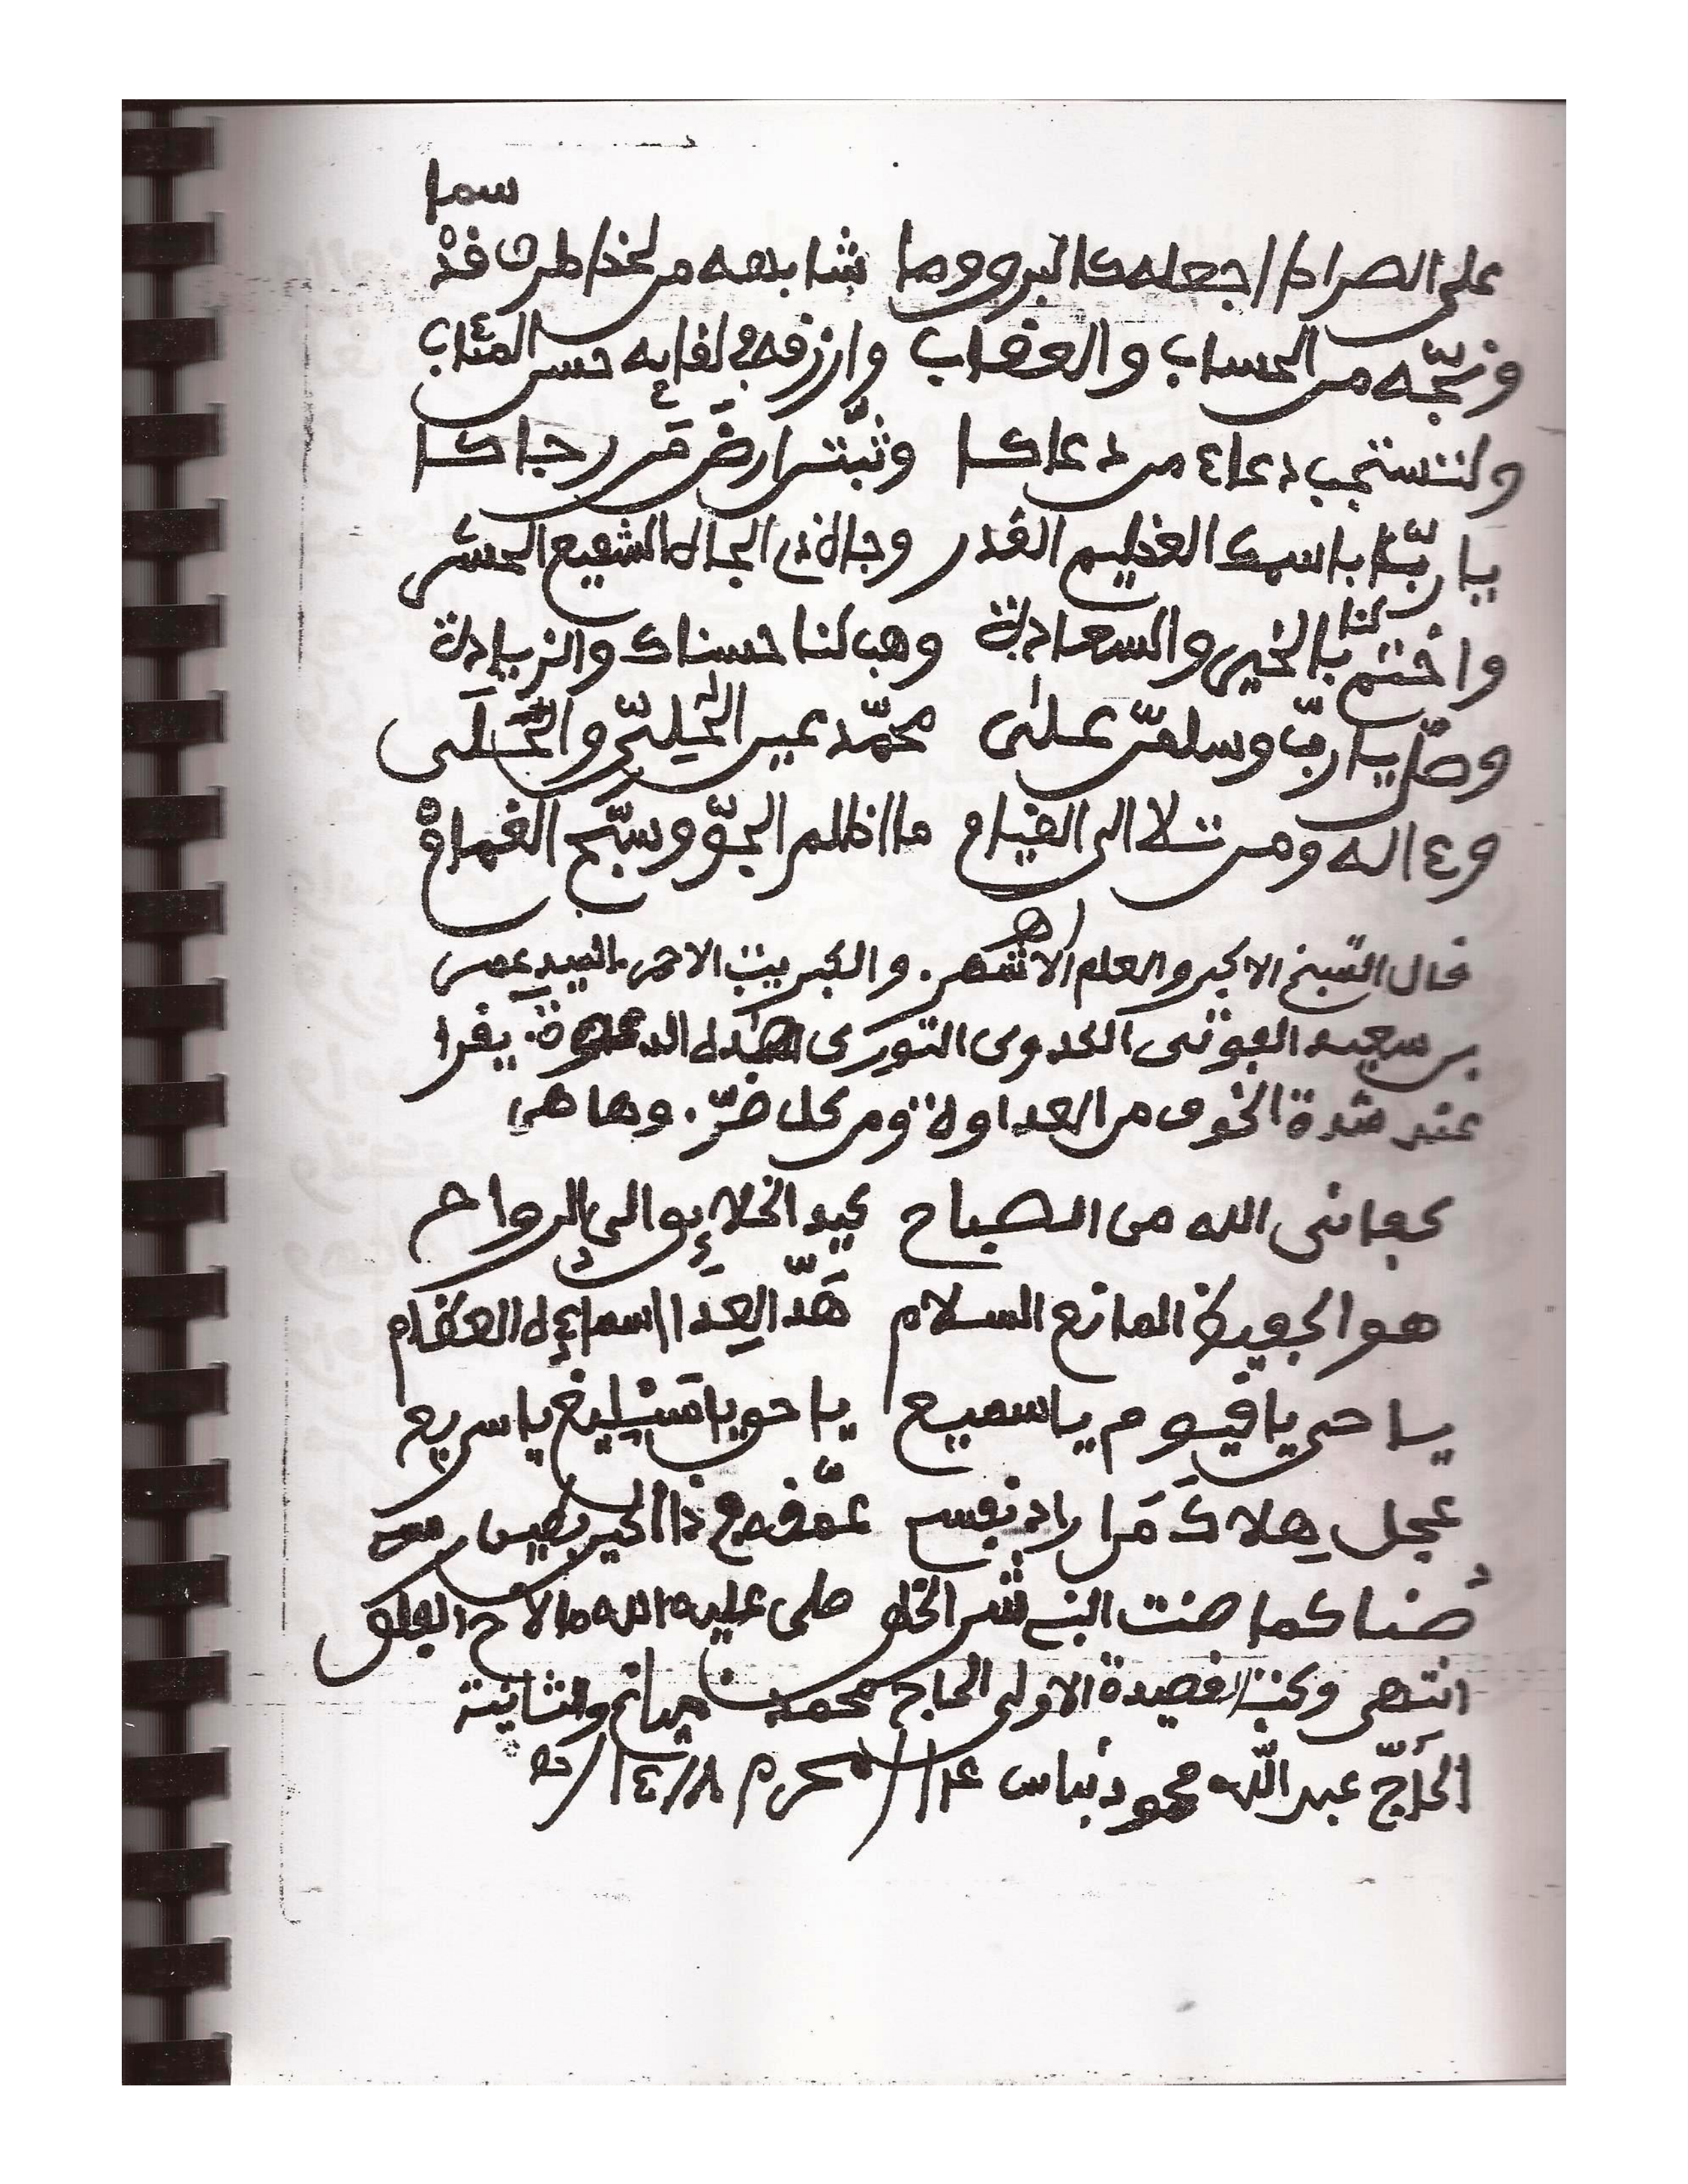 سما
على الصراط اجعله كالبرق وما شابهه من
ونجّه من الحساب والعقاب وارزقه في لقايه حسن المئاب
ولتستجب دعاء من دعاكا وثبّتن ارض من رجاكا
يا ربّنا باسمك العظيم القدر وجاه ذي الجاه الشفيع الحشر
واختم لنا بالخير والسعادة وهب لنا حسناك والزيادة
وصلّ يا ربّ وسلمنّ على محمّد عين
وءاله ومن تلا الى القيام ما اظلم الجوّ وسبّح الغمام
قال الشيخ الاكبر والعلم الاشهر. والكبريت الاحمر السيد عمر
بن سعيد الفوتى الكدوى التورى هذه الدعوة يقرا
عند شدة الخوف من العداوة ومن كل ضرّ. وها هي
كفانى الله من الصباح كيد الخلائق الى الرواح
هو الحفيظ المانع السلام هدّ العدا اسماءه العظام
يا حي يا قيوم يا سميع يا سريع
عجل هلاك من اراد نفسي
صنا كما صنت النبي خير الخلق صلى عليه الله ما لاح الفلق
انتهى وكتب القصيدة الاولى الحاج محمد والثانية
الحاجّ عبد الله محمود نباس المحرم